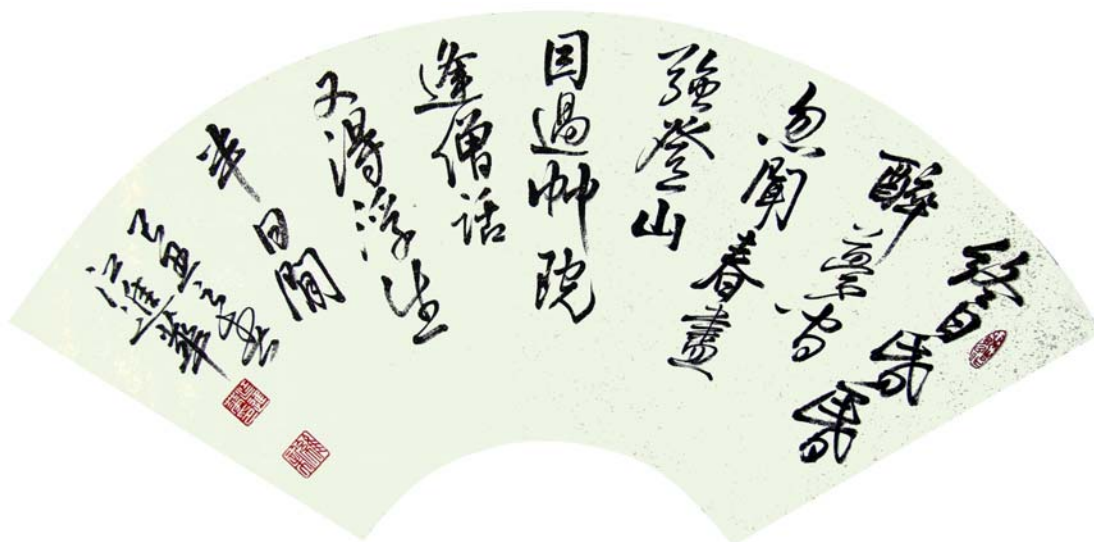 終日昏昏
醉夢間
忽聞春盡
強登山
因過竹院
逢僧話
又得浮生
半日閒
己丑